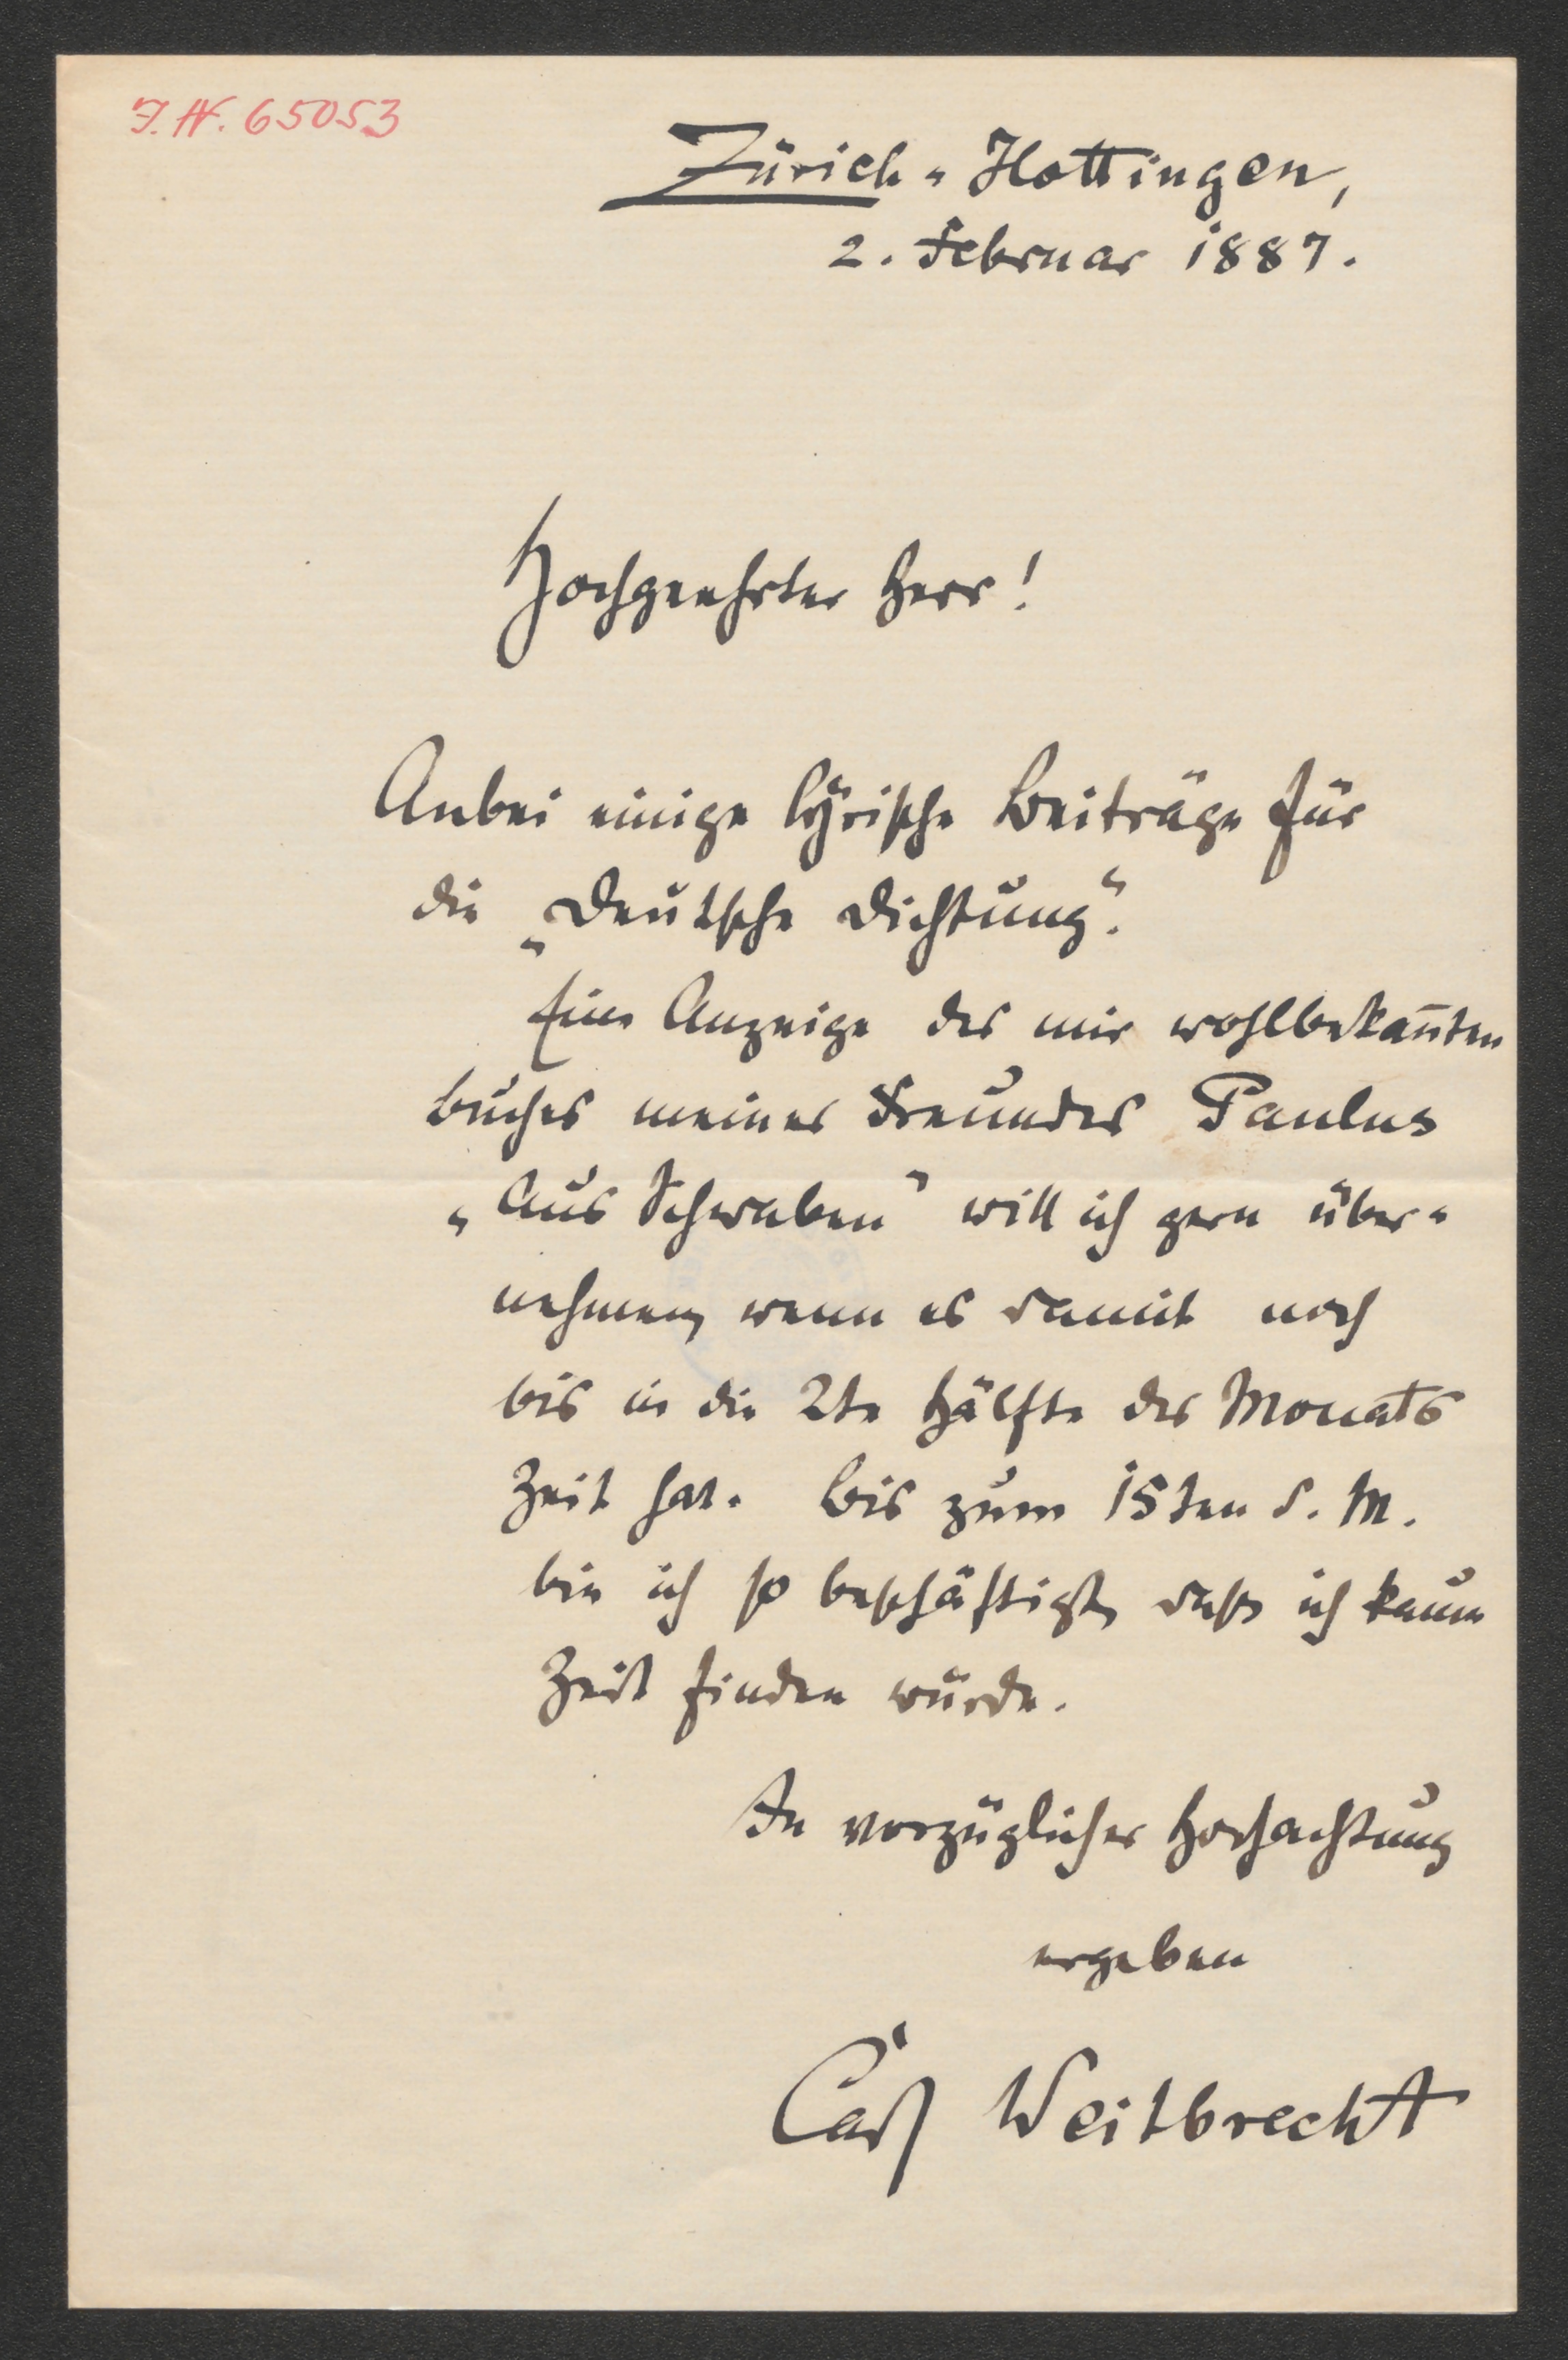 I.N. 65053
Zürich-Hottingen,
2. Februar 1887.
Hochgeehrter Herr!
Anbei einige lyrische Beiträge für
die „Deutsche Dichtung“.
Eine Anzeige des mir wohlbekan̄ten
Buches meines Freundes Paulus
„Aus Schwaben“ will ich gern über-
nehmen, wenn es damit noch
bis in die 2te Hälfte des Monats
Zeit hat. Bis zum 15ten d. M.
bin ich so beschäftigt, daß ich kaum
Zeit finden würde.
In vorzüglicher Hochachtung
ergeben
Carl Weitbrecht